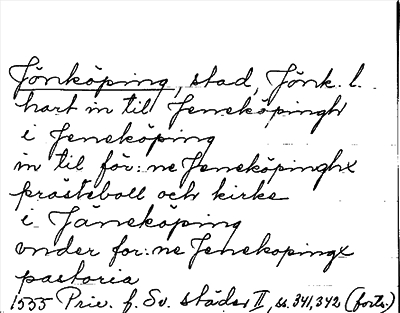 Jönköping, stad, Jönk. l.
hart in til Jeneköpingh
i Jeneköping
in til för:ne Jeneköpinghx
prästeboll och kirke
i Jäneköping
vnder for:ne Jenekopingx
pastoria
1555 Priv. f. Sv. städer II, ss. 341, 342 (forts.)